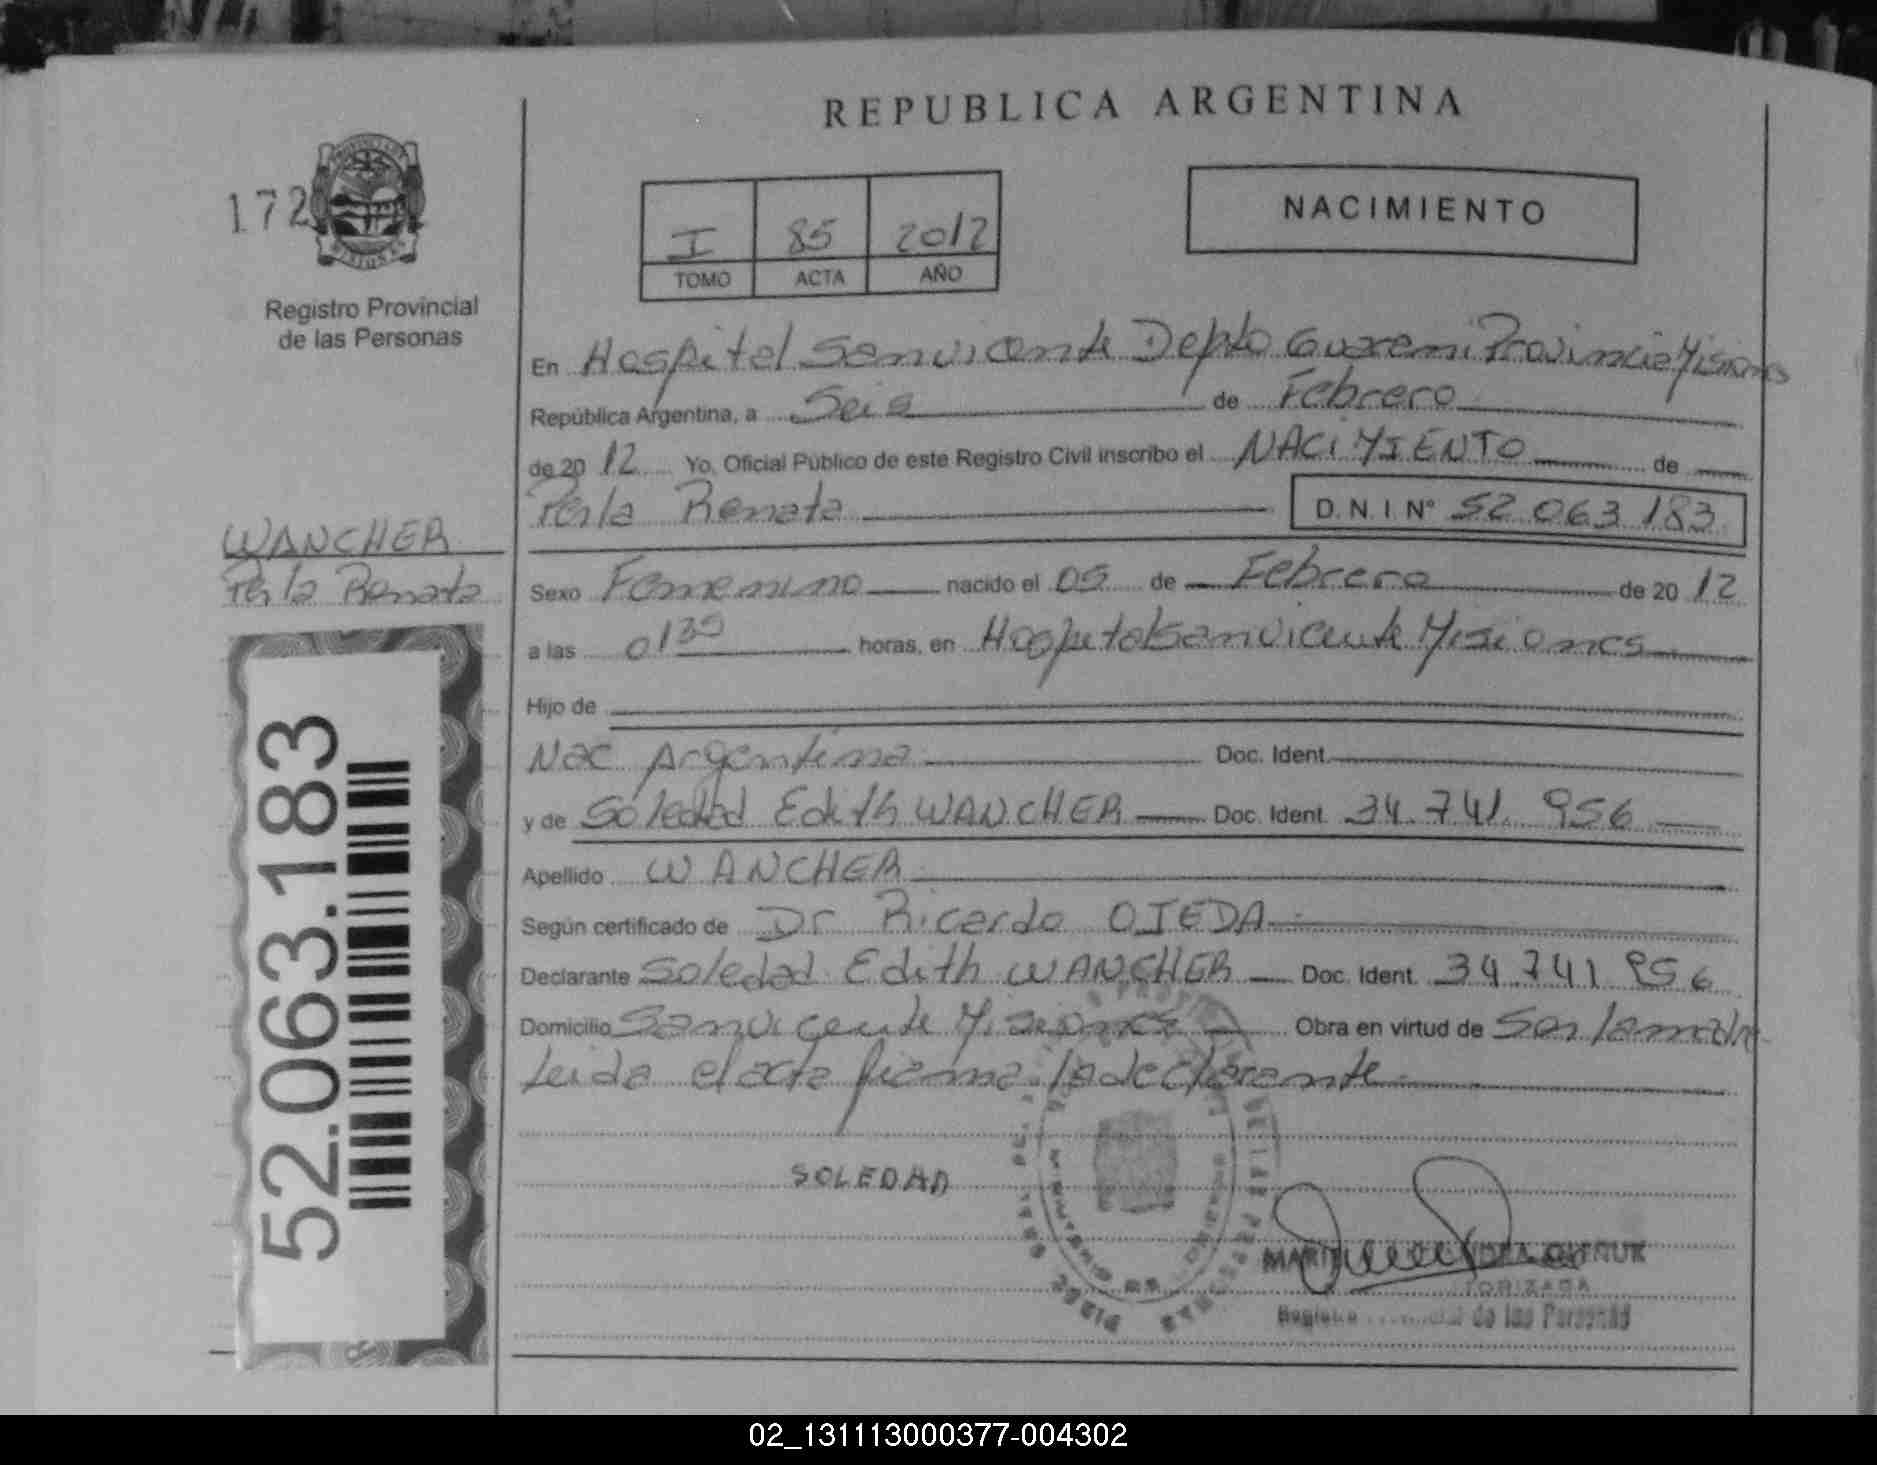 REPUBLICA ARGENTINA
172
Registro Provincial
de las Personas
I 85 2012
TOMO ACTA AÑO
NACIMIENTO
En Hospital San vicente Depto Guarani Provincia Misiones
República Argentina, a Seis de Febrero
de 20 12 Yo, Oficial Público de este Registro Civil inscribo el NACIMIENTO de
Perla Renata D.N.I. N° 52 063 183
WANCHER
Perla Renata
Sexo Femenino nacido el 05 de Febrero de 20 12
a las 01 horas, en Hospital San vicente Misiones
Hijo de
Nac Argentina Doc. Ident.
y de Soledad Edith WANCHER Doc. Ident. 34.741.956
Apellido WANCHER
Según certificado de Dr Ricardo OJEDA
Declarante Soledad Edith WANCHER Doc. Ident. 34.741.956
Domicilio San vicente Misiones Obra en virtud de Ser la madre
Leida el acta firma la declarante
SOLEDAD
de las Personas
52.063.183
02_131113000377-004302